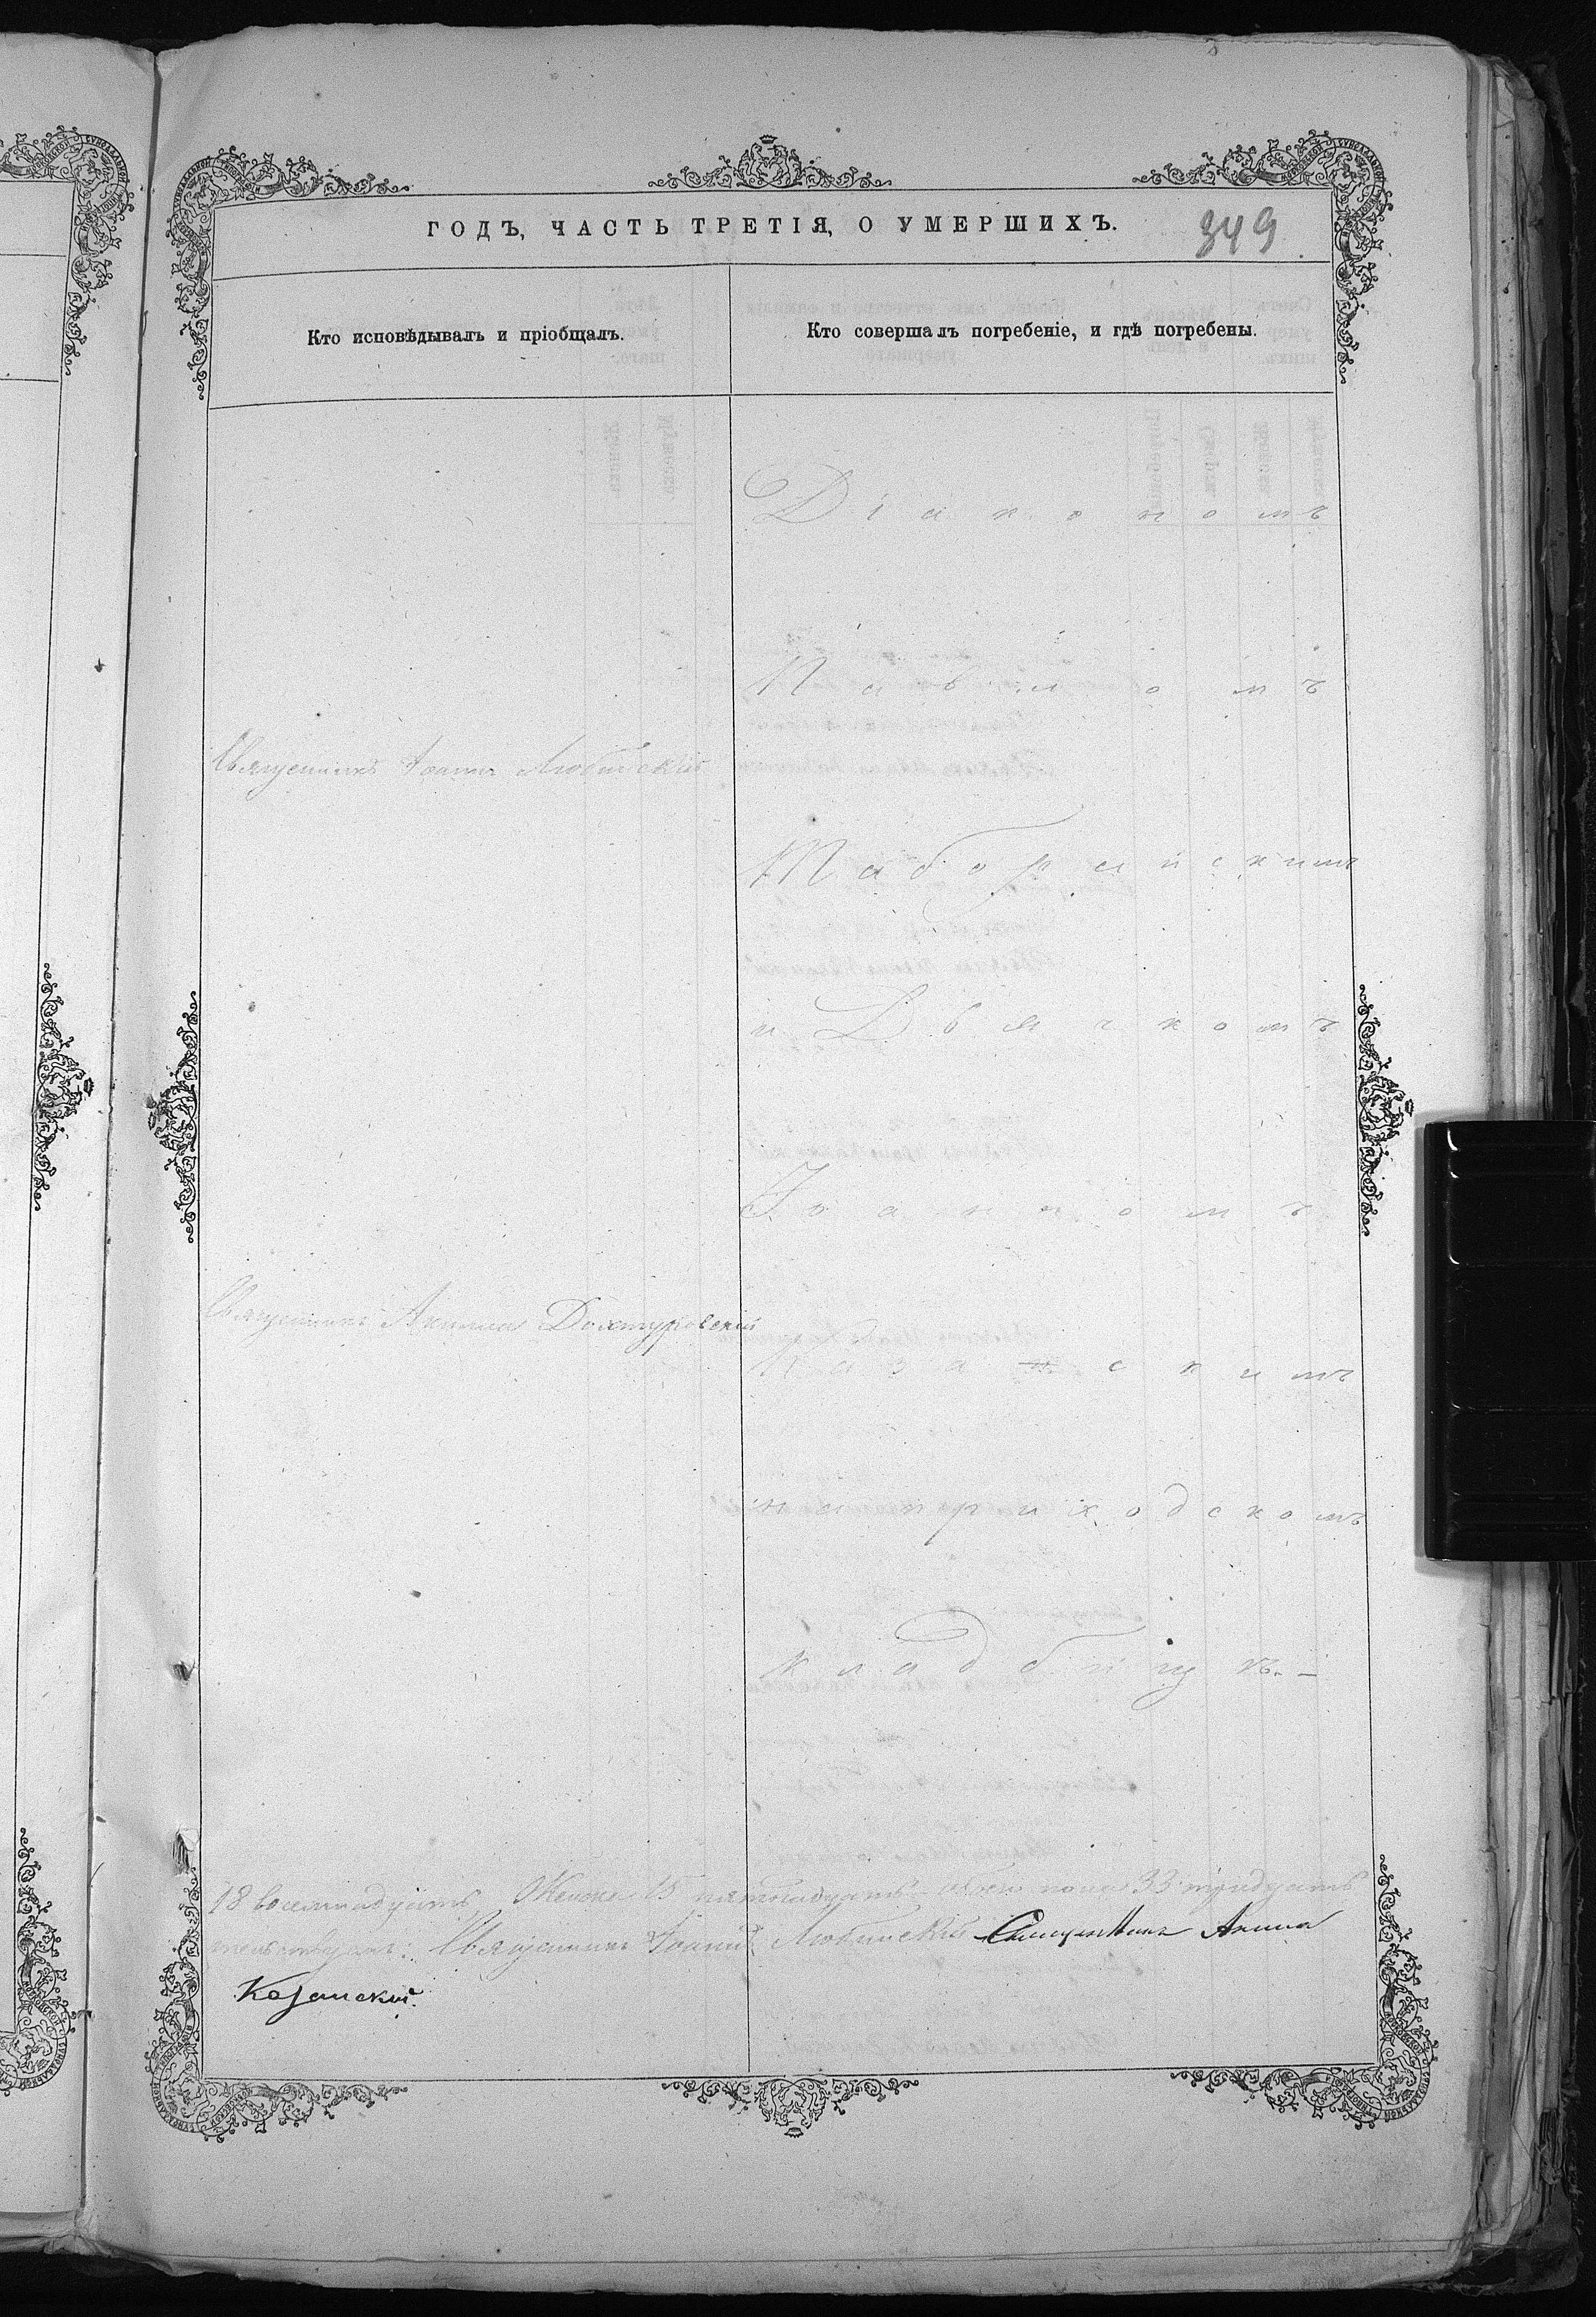 ГОДЪ, ЧАСТЬ ТРЕТІЯ, О УМЕРШИХЪ.
349
Кто исповѣдывалъ и пріобщалъ.
Кто совершалъ погребеніе, и гдѣ погребены.
Діакономъ
Павломъ
Священникъ Іоаннъ Любимскій
и Дьячкомъ
Іоанномъ
Священникъ Дохтуровскій
Казанскимъ
на приходскомъ
кладбищѣ. –
18 восемнадцать Женска 15 пятнадцать обоего пола 33 тридцать
Священникъ Іоаннъ Любимскій
Казанскій.